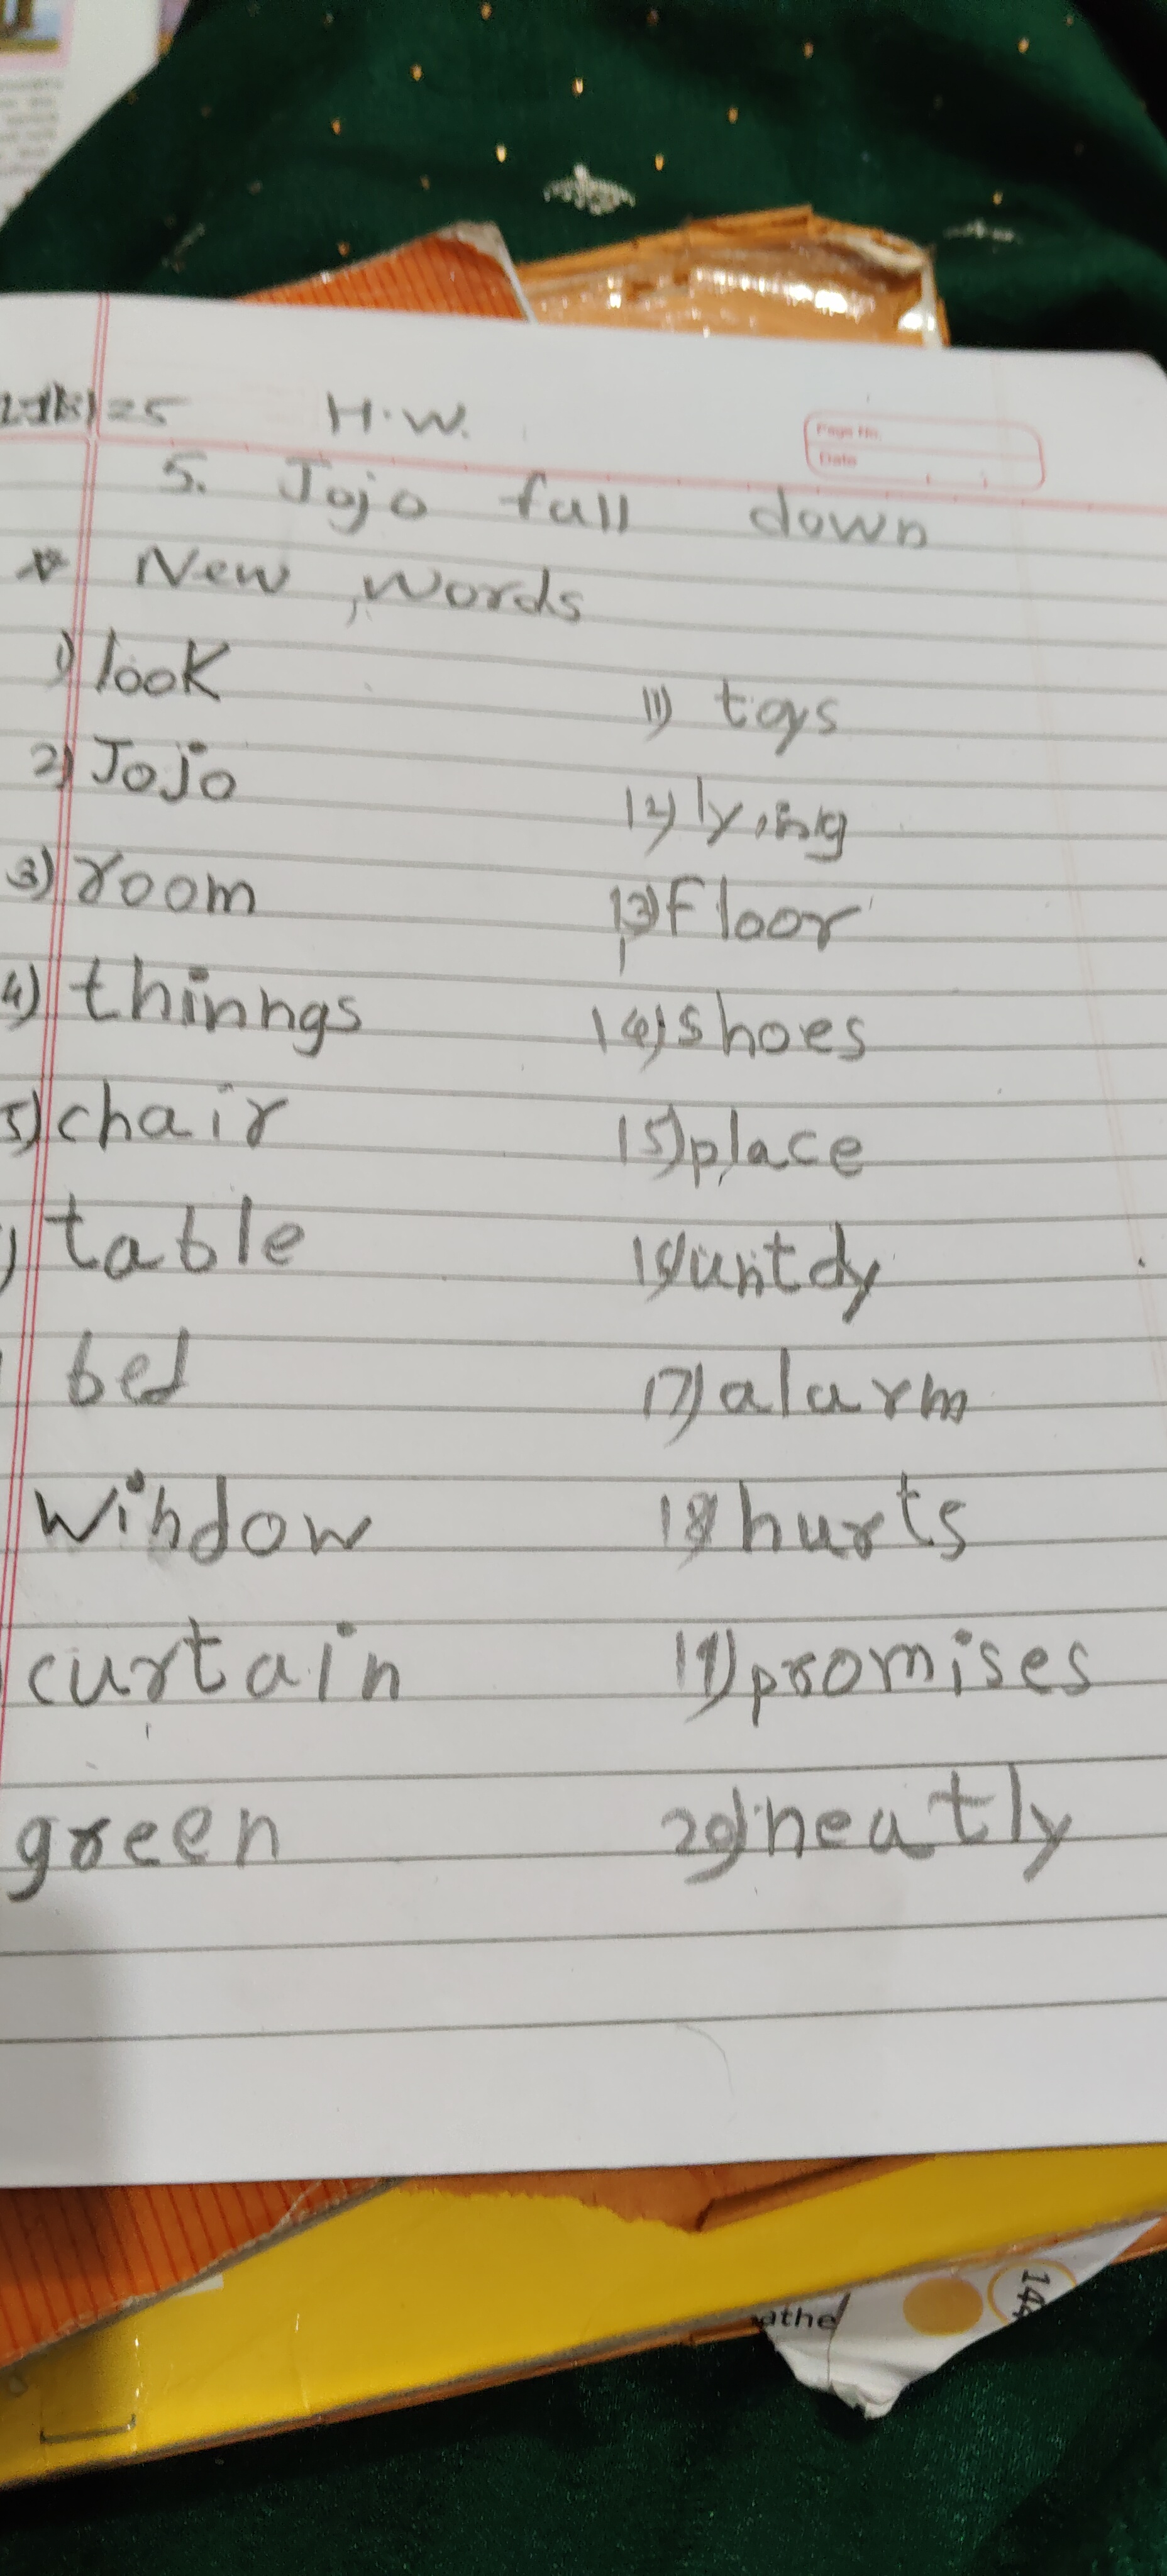 H.W.
Page No.
Date
5. Jojo fall down
New Words
1) look
2) Jojo
3) room
4) thinngs
5) chair
) table
bed
window
curtain
green
11) toys
12) lying
13) Floor
14) shoes
15) place
16) untdy
17) alarm
18) hurts
19) promises
20) neatly
144